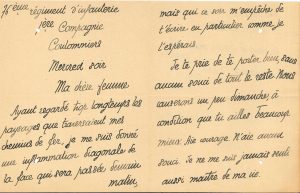 76ème régiment d'infanterie
1ère Compagnie
Coulommiers
Mercredi soir
Ma chère femme
Ayant regardé trop longtemps les
paysages que traversaient mes
chemins de fer, je me suis donné
une inflammation diagonale de
la face qui sera passée demain
matin,
mais qui ce soir m'empêche de
t'écrire en particulier comme je
l'espérais.
Je te prie de te porter bien, sans
aucun souci de tout le reste. Nous
causerons un peu dimanche, à
condition que tu ailles beaucoup
mieux. Aie courage. N'aie aucun
souci. Je ne me suis jamais senti
aussi maître de ma vie.